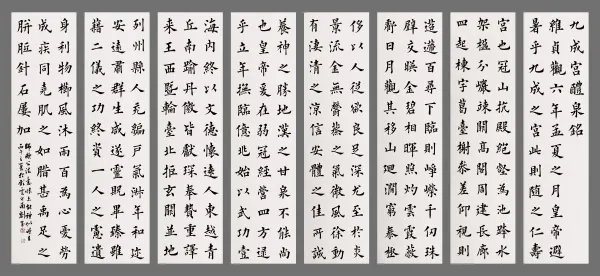 九成宮醴泉銘
維貞觀六年孟夏之月皇帝避
暑乎九成之宮此則隨之仁壽
宮也冠山抗殿絕壑為池跨水
架楹分巖竦闕高閣周建長廊
四起棟宇葛臺榭叅差仰視則
迢遰百尋下臨則崢嶸千仞珠
壁交暎金碧相暉照灼雲霞蔽
虧日月觀其移山迴澗窮泰極
侈以人從欲良足深尤至於炎
景流金無鬱蒸之氣微風徐動
有淒清之涼信安體之佳所誠
養神之勝地漢之甘泉不能尚
也皇帝爰在弱冠經營四方逮
乎立年撫臨億兆始以武功壹
海內終以文德懷遠人東越青
丘南踰丹徼皆獻琛奉贄重譯
來王西暨輪臺北拒玄闕並地
列州縣人充編戶氣淑年和迩
安遠肅群生咸遂靈貺畢臻雖
藉二儀之功終資一人之慮遺
身利物櫛風沐雨百為心憂勞
成疾同堯肌之如腊甚禹足之
胼胝針石屢加